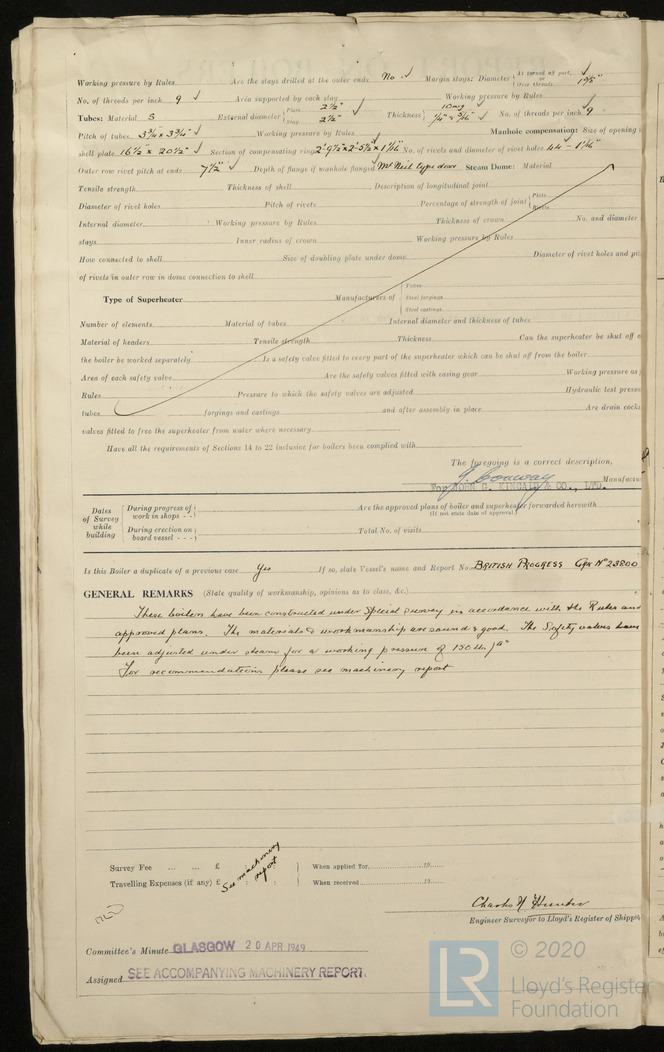 Working pressure by Rules Are the stays drilled at the outer ends No Margin stays: Diameter { At turned off part, or Over threads
No. of threads per inch 9 Area supported by each stay Working pressure by Rules
Tubes: Material S External diameter { Plain 2½" Stay 2½" Thickness { 10 mwg ¼" & 5/16" No. of threads per inch 9
Pitch of tubes 3¾" x 3¾" Working pressure by Rules Manhole compensation: Size of opening
shell plate 16½" x 20½" Section of compensating ring No. of rivets and diameter of rivet holes 44 - 1 1/16"
Outer row rivet pitch at ends 7½" Depth of flange if manhole flanged Mc Neil type door Steam Dome: Material
Tensile strength Thickness of shell Description of longitudinal joint
Diameter of rivet holes Pitch of rivets Percentage of strength of joint { Plate Rivets
Internal diameter Working pressure by Rules Thickness of crown No. and diameter
stays Inner radius of crown Working pressure by Rules
How connected to shell Size of doubling plate under dome Diameter of rivet holes and
of rivets in outer row in dome connection to shell
Type of Superheater Manufacturers of { Tubes Steel forgings Steel castings
Number of elements Material of tubes Internal diameter and thickness of tubes
Material of headers Tensile strength Thickness Can the superheater be shut off
the boiler be worked separately Is a safety valve fitted to every part of the superheater which can be shut off from the boiler
Area of each safety valve Are the safety valves fitted with easing gear Working pressure as
Rules Pressure to which the safety valves are adjusted Hydraulic test
tubes forgings and castings and after assembly in place Are drain cocks
valves fitted to free the superheater from water where necessary
Have all the requirements of Sections 14 to 22 inclusive for boilers been complied with
The foregoing is a correct description,
J. Conway Manufact
For JOHN G. KINCAID & CO., LTD.
Dates of Survey while building { During progress of work in shops - - Are the approved plans of boiler and superheater forwarded herewith
(If not state date of approval)
During erection on board vessel - - - Total No. of visits
Is this Boiler a duplicate of a previous case Yes If so, state Vessel's name and Report No. BRITISH PROGRESS Grk No 23800
GENERAL REMARKS (State quality of workmanship, opinions as to class, &c.)
These boilers have been constructed under Special Survey in accordance with the Rules and
approved plans. The materials & workmanship are sound & good. The Safety valves have
been adjusted under steam for a working pressure of 150 lbs/□"
For recommendation please see machinery report
Survey Fee ... ... £ : : When applied for, 19
See machinery report
Travelling Expenses (if any) £ : : When received 19
Charles N Hunter
Engineer Surveyor to Lloyd's Register of Shipp
Committee's Minute GLASGOW 20 APR 1949
Assigned SEE ACCOMPANYING MACHINERY REPORT.
LR © 2020
Lloyd's Register
Foundation